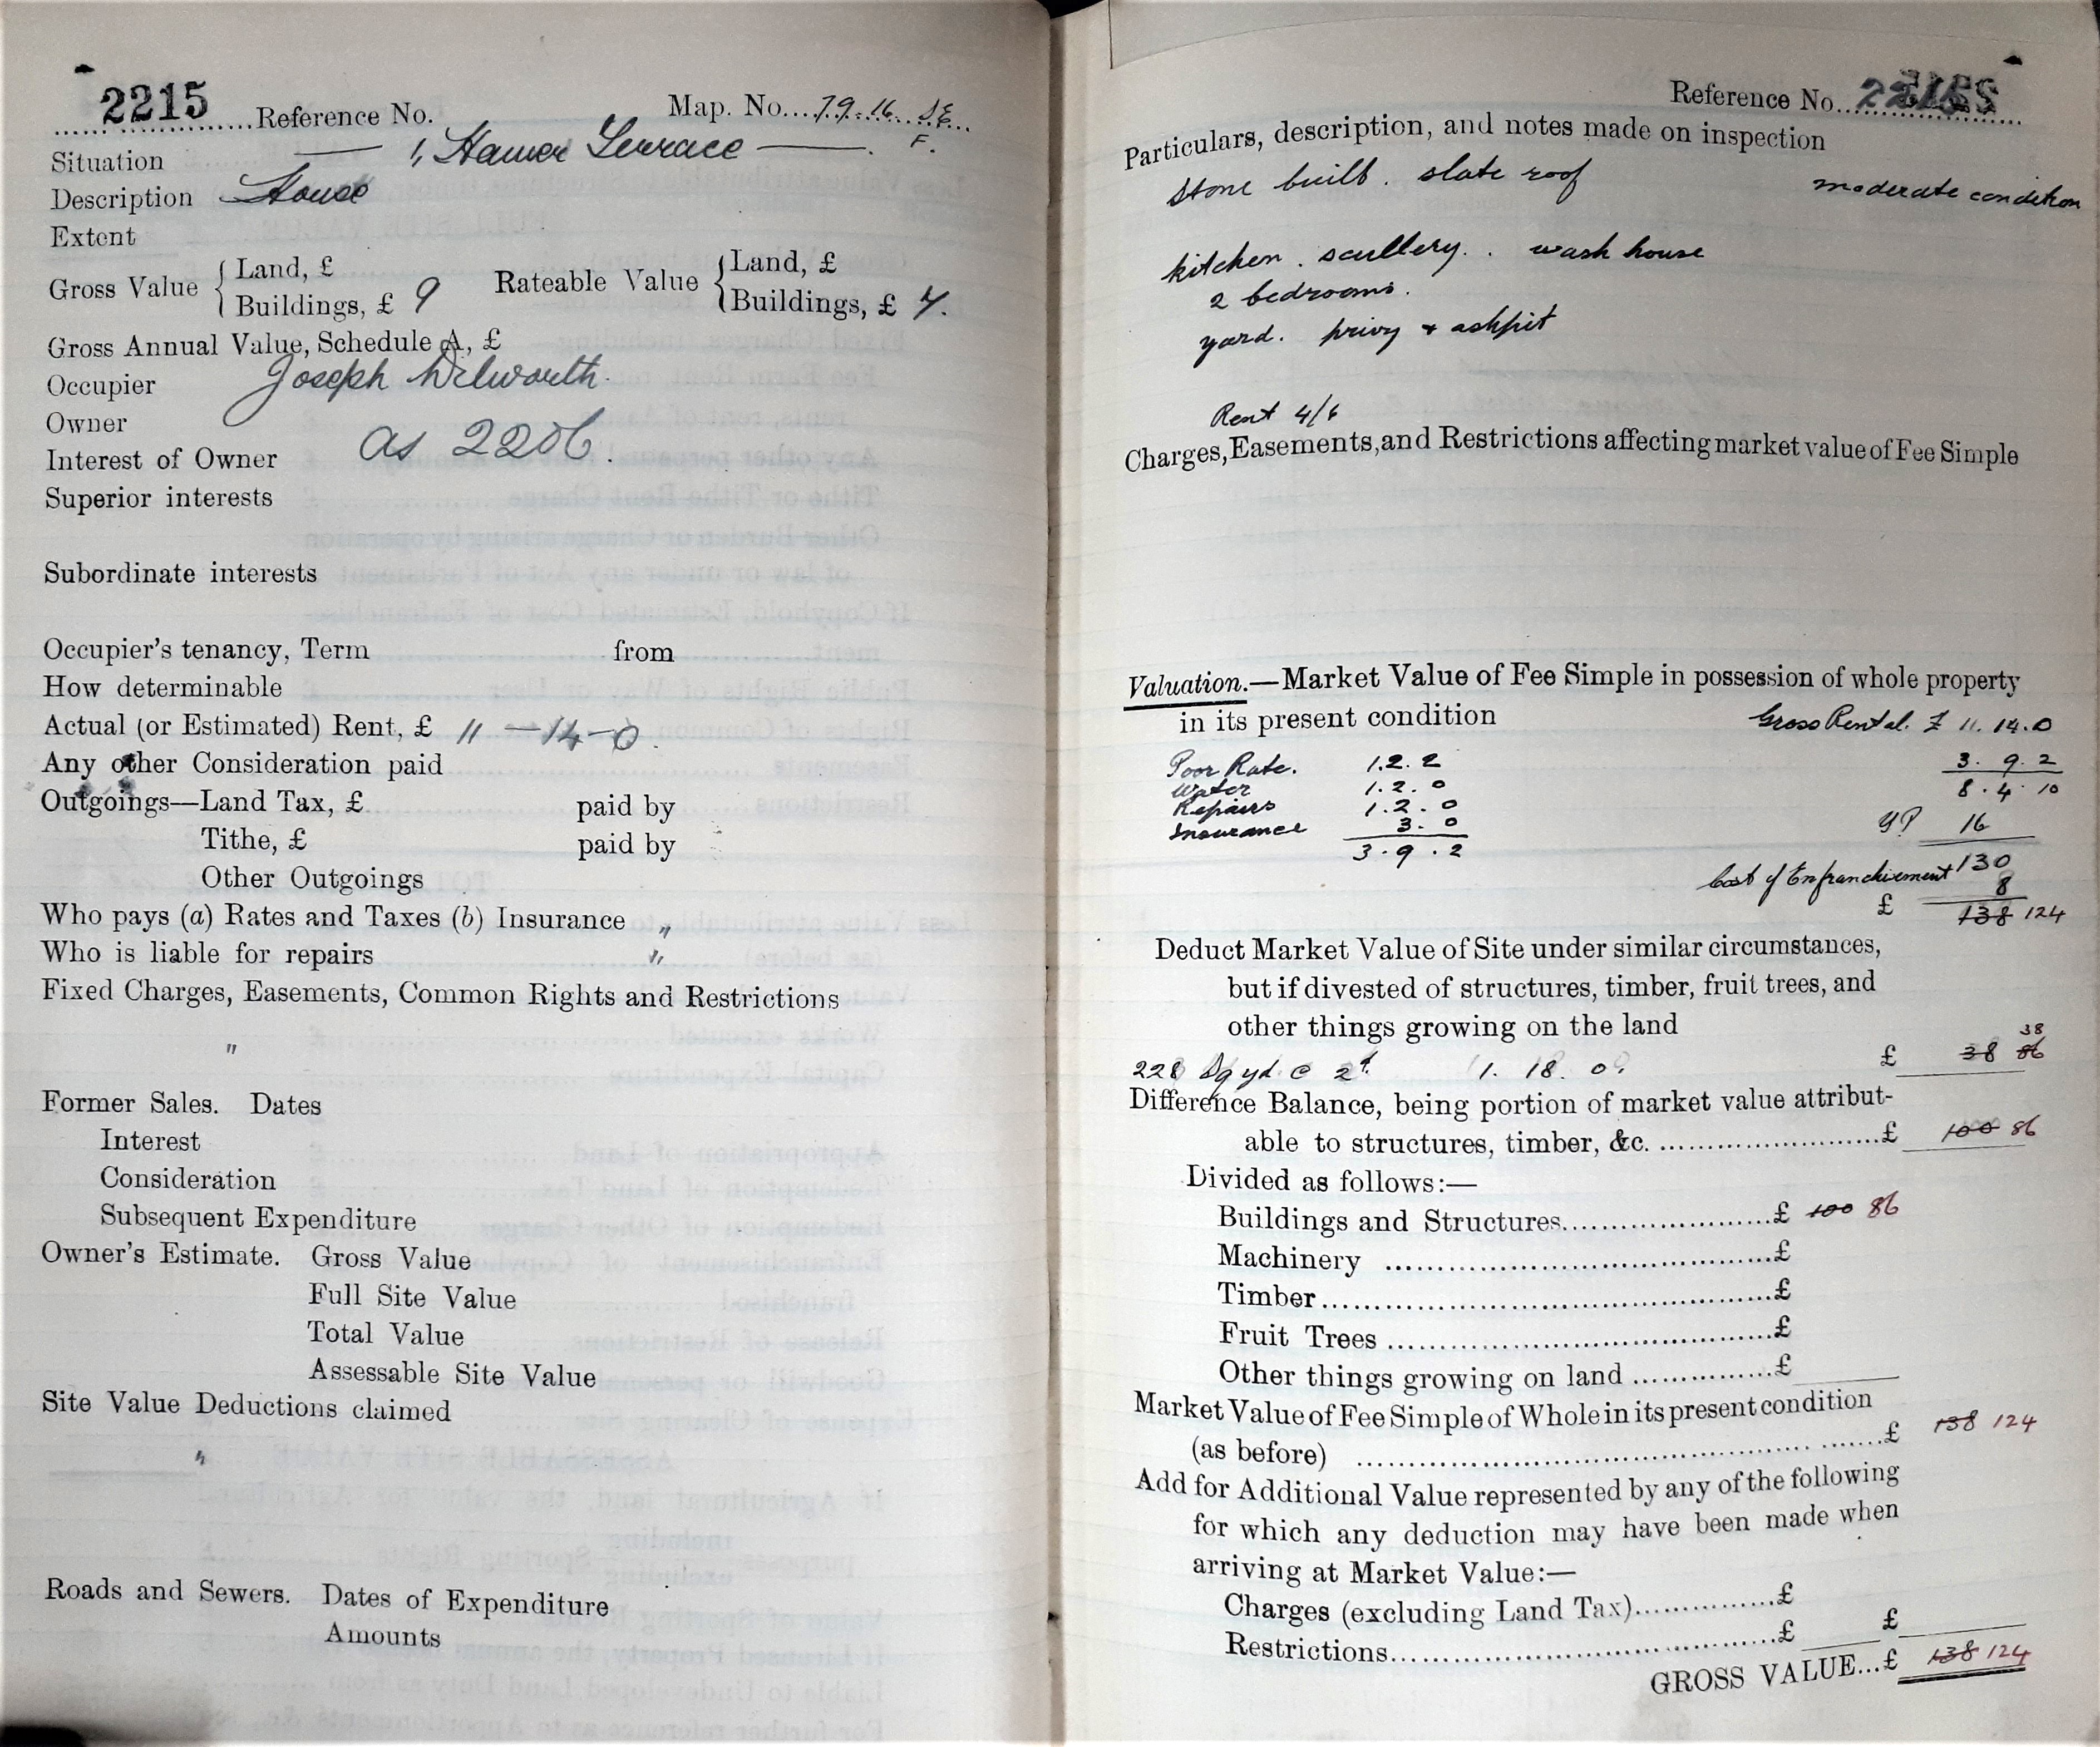 2215 Reference No. Map. No. 79.16 S.E.
F.
Situation 1, Hamer Terrace
Description House
Extent
Gross Value { Land, £ Rateable Value { Land, £
Buildings, £ 9 Buildings, £ 7.
Gross Annual Value, Schedule A, £
Occupier Joseph Dilworth.
Owner
Interest of Owner as 2206.
Superior interests
Subordinate interests
Occupier's tenancy, Term from
How determinable
Actual (or Estimated) Rent, £ 11-14-0.
Any other Consideration paid
Outgoings—Land Tax, £ paid by
Tithe, £ paid by
Other Outgoings
Who pays (a) Rates and Taxes (b) Insurance "
Who is liable for repairs "
Fixed Charges, Easements, Common Rights and Restrictions
"
Former Sales. Dates
Interest
Consideration
Subsequent Expenditure
Owner's Estimate. Gross Value
Full Site Value
Total Value
Assessable Site Value
Site Value Deductions claimed
"
Roads and Sewers. Dates of Expenditure
Amounts
Reference No.
Particulars, description, and notes made on inspection
Stone built. slate roof moderate condition
kitchen. scullery. wash house
2 bedrooms.
yard. privy + ashpit
Rent 4/6
Charges, Easements, and Restrictions affecting market value of Fee Simple
Valuation.—Market Value of Fee Simple in possession of whole property
in its present condition Gross Rental. £ 11. 14. 0
Poor Rate. 1. 2. 2 3. 9. 2
Water 1. 2. 0 8. 4. 10
Repairs 1. 2. 0
Insurance 3. 0 YP 16
3. 9. 2
Cost of Enfranchisement 130
8
£ 138 124
Deduct Market Value of Site under similar circumstances,
but if divested of structures, timber, fruit trees, and
other things growing on the land
38
228 Sq yd. @ 2d. 1. 18. 0 £ 38 86
Difference Balance, being portion of market value attribut-
able to structures, timber, &c. £ 100 86
Divided as follows:—
Buildings and Structures £ 100 86
Machinery £
Timber £
Fruit Trees £
Other things growing on land £
Market Value of Fee Simple of Whole in its present condition
(as before) £ 138 124
Add for Additional Value represented by any of the following
for which any deduction may have been made when
arriving at Market Value:—
Charges (excluding Land Tax) £
Restrictions £ £
GROSS VALUE...£ 138 124